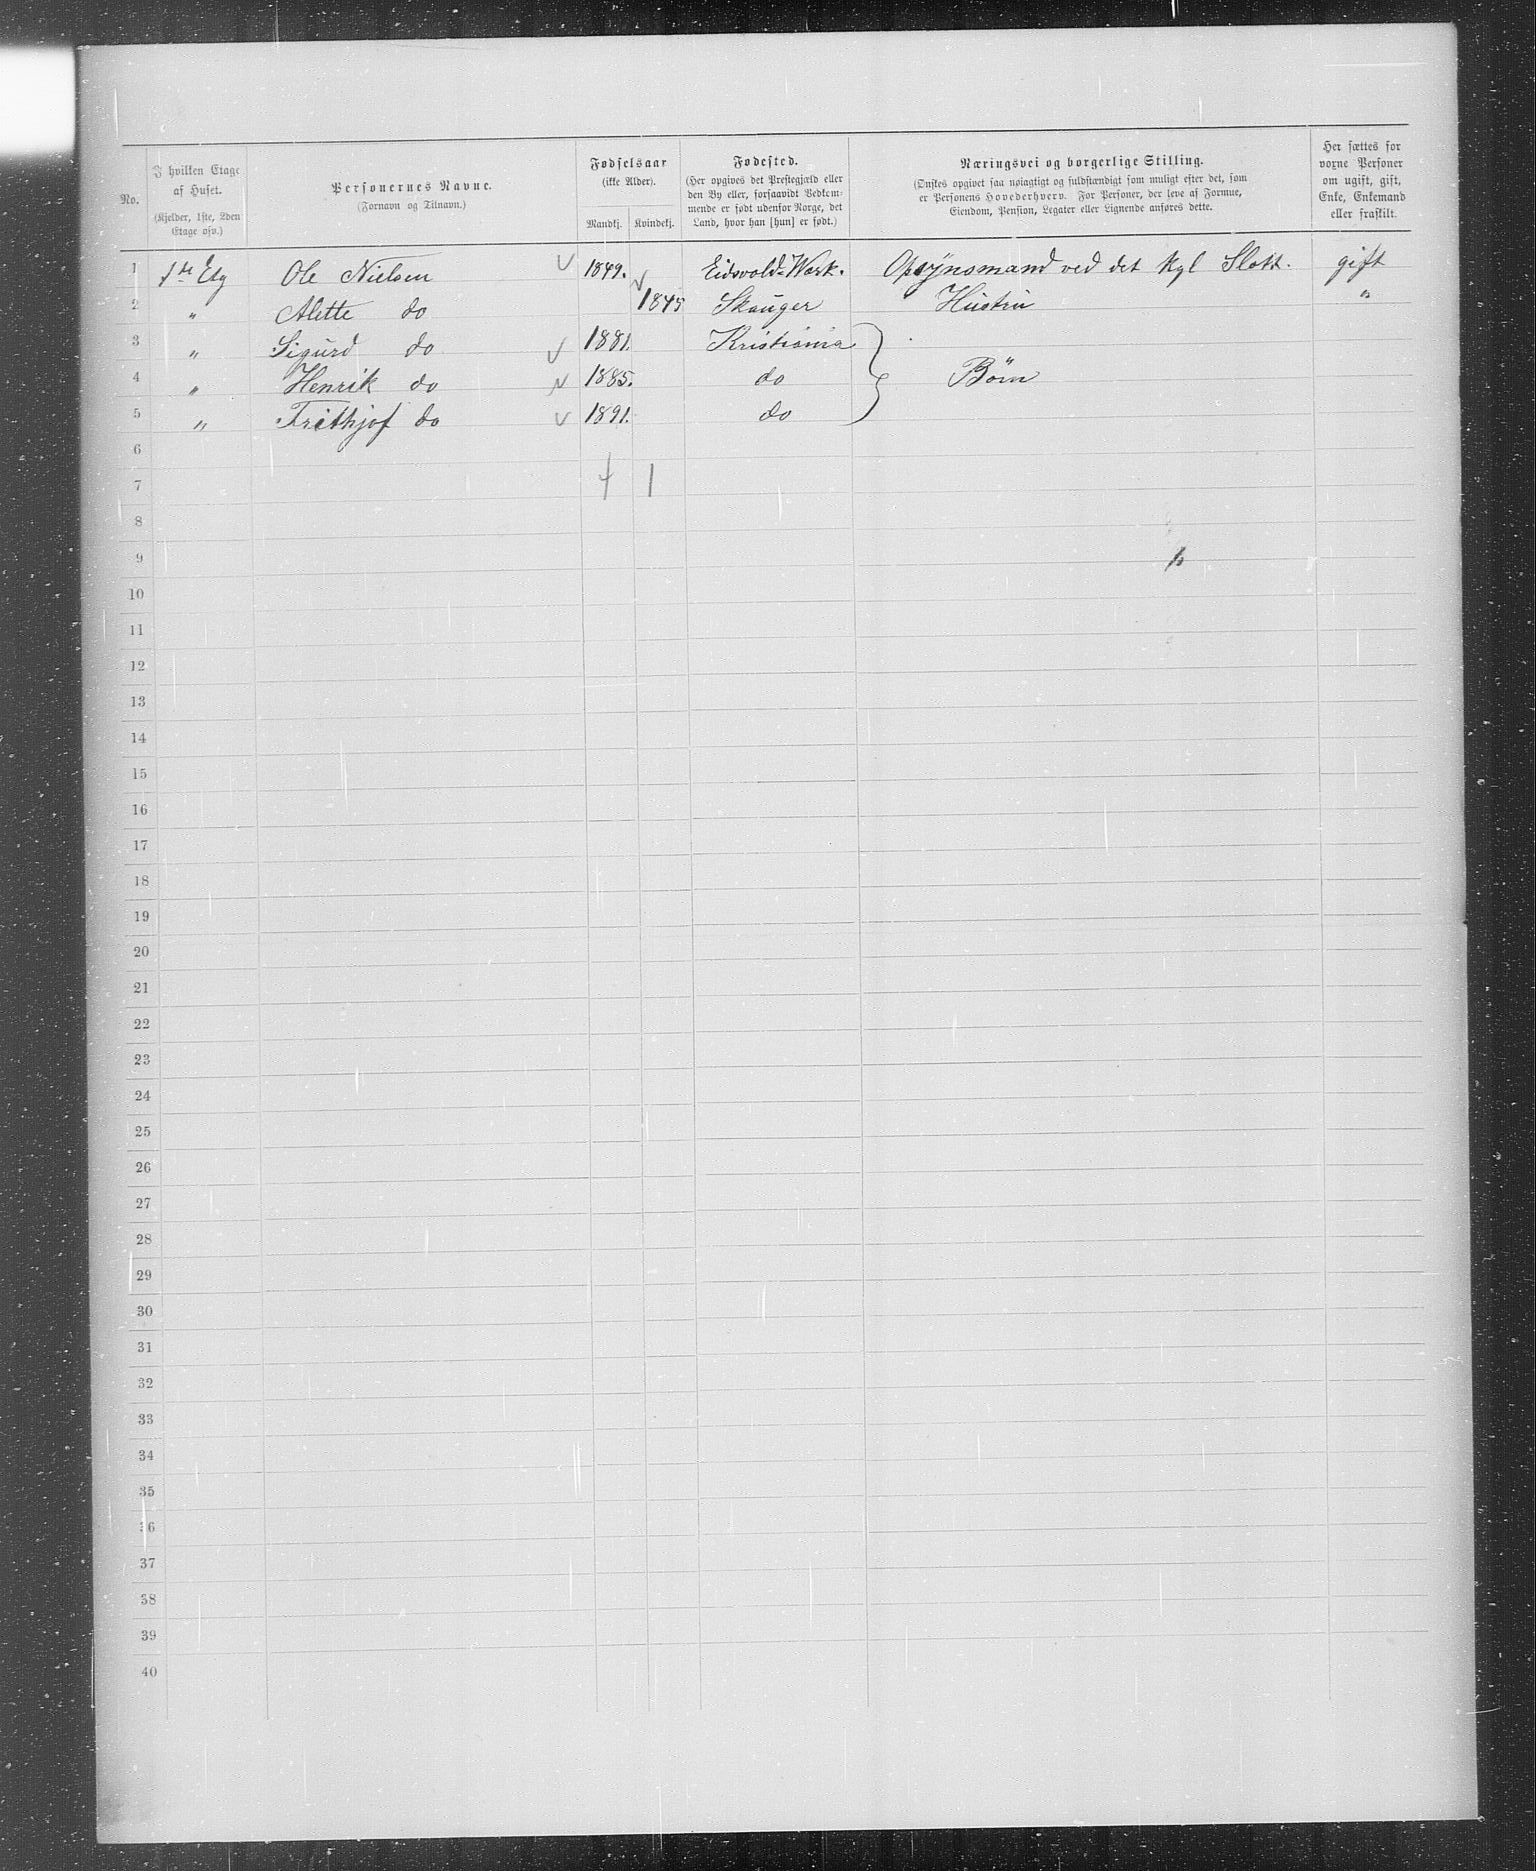 No. | I hvilken Etage af Huset. (Kjelder, 1ste, 2den Etage osv.) | Personernes Navne. (Fornavn og Tilnavn.) | Fødselsaar (ikke Alder). Mandkj. | Kvindekj. | Fødested. (Her opgives det Præstegjæld eller den By eller, forsaavidt Vedkommende er født udenfor Norge, det Land, hvor han [hun] er født.) | Næringsvei og borgerlige Stilling. (Ønskes opgivet saa nøiagtigt og fuldstændigt som muligt efter det, som er Personens Hovederhverv. For Personer, der leve af Formue, Eiendom, Pension, Legater eller Lignende anføres dette.) | Her sættes for voxne Personer om ugift, gift, Enke, Enkemand eller fraskilt.
1 1ste Etg Ole Nielsen 1849. Eidsvold-Værk. Opsynsmand ved det kgl Slott. gift
2 " Alette do 1845 Skauger Hustru "
3 " Sigurd do 1881. Kristiania
4 " Henrik do 1885. do } Börn
5 " Frithjof do 1891. do
6
7 4 1
8
9
10
11
12
13
14
15
16
17
18
19
20
21
22
23
24
25
26
27
28
29
30
31
32
33
34
35
36
37
38
39
40